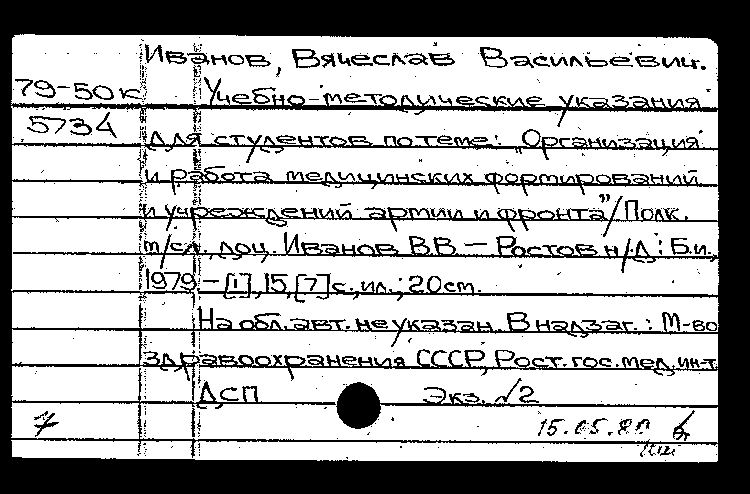 Иванов, Вячеслав Васильевич.
79-50к Учебно-методические указания
5734 для студентов по теме: „Организация
и работа медицинских формирований
и учреждений армии и фронта"/Полк.
м/сл., доц. Иванов В.В — Ростов н/Д : Б.и.,
1979 — [1], 15, [7] с., ил.; 20 см.
На обл. авт. не указан. В надзаг.: М-во
здравоохранения СССР, Рост. гос. мед. ин-т.
ДСП Экз. №2
7 15.05.80